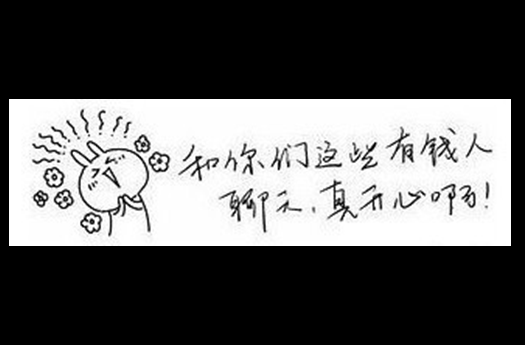 和你们这些有钱人
聊天,真开心啊!